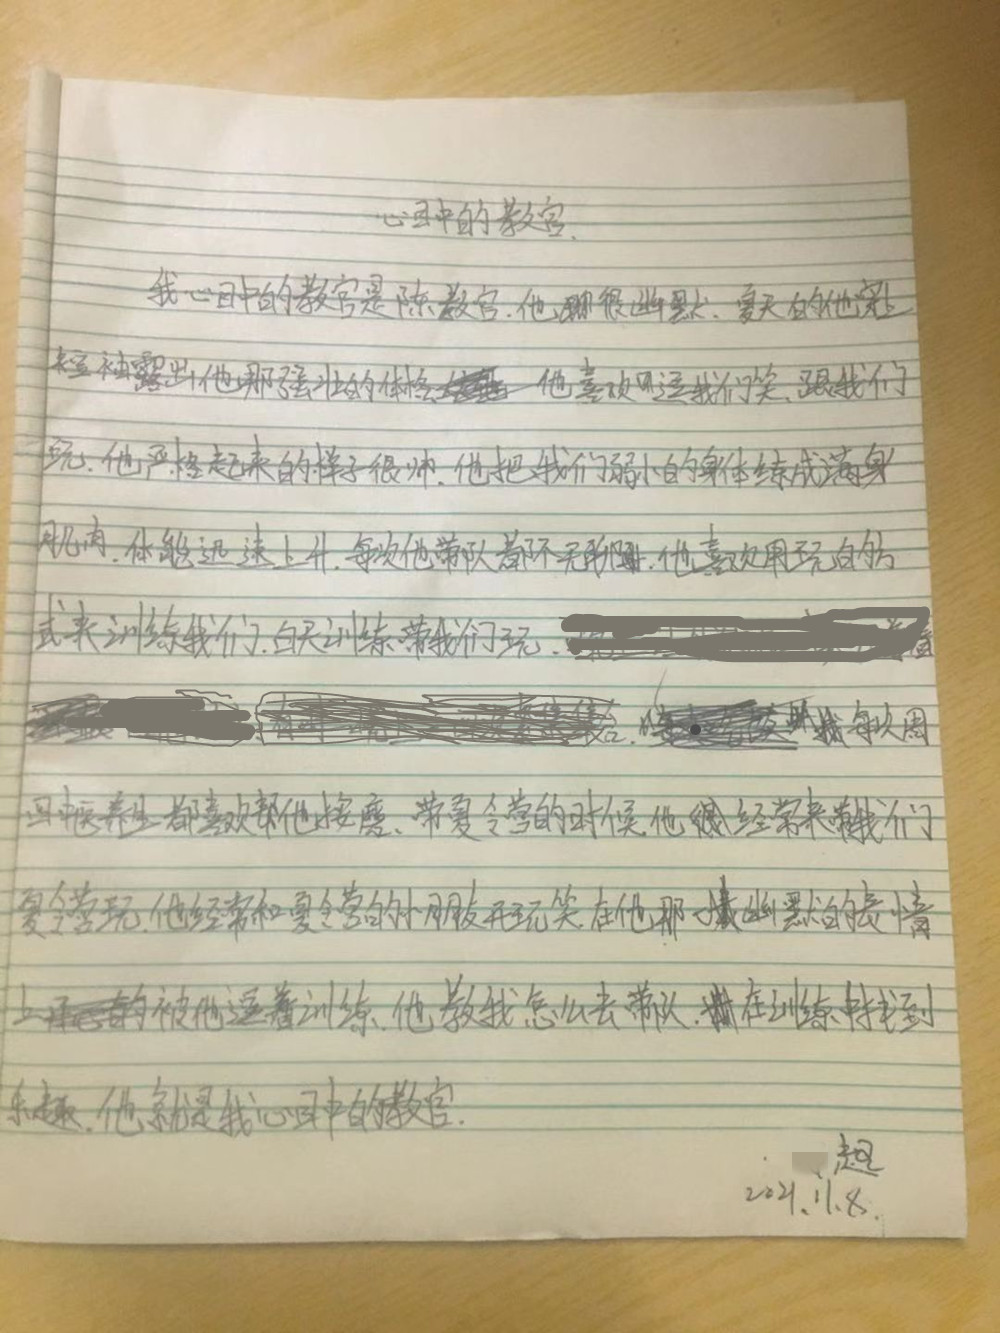 心目中的教官.
我心目中的教官是陈教官.他很幽默.夏天的他穿上
短袖露出他那强壮的体格 他喜欢逗我们笑、跟我们
玩、他严格起来的样子很帅.他把我们弱小的身体练成满身
肌肉.体能迅速上升.每次他带队都不无聊.他喜欢用玩的方
式来训练我们.白天训练、带我们玩.
我每次周
四中医养生都喜欢帮他按摩、带夏令营的时候.他经常来带我们
夏令营玩.他经常和夏令营的小朋友开玩笑.在他那幽默的表情
上 被他逗着训练.他教我怎么去带队.在训练中找到
乐趣.他就是我心目中的教官.
超
2021.11.8.